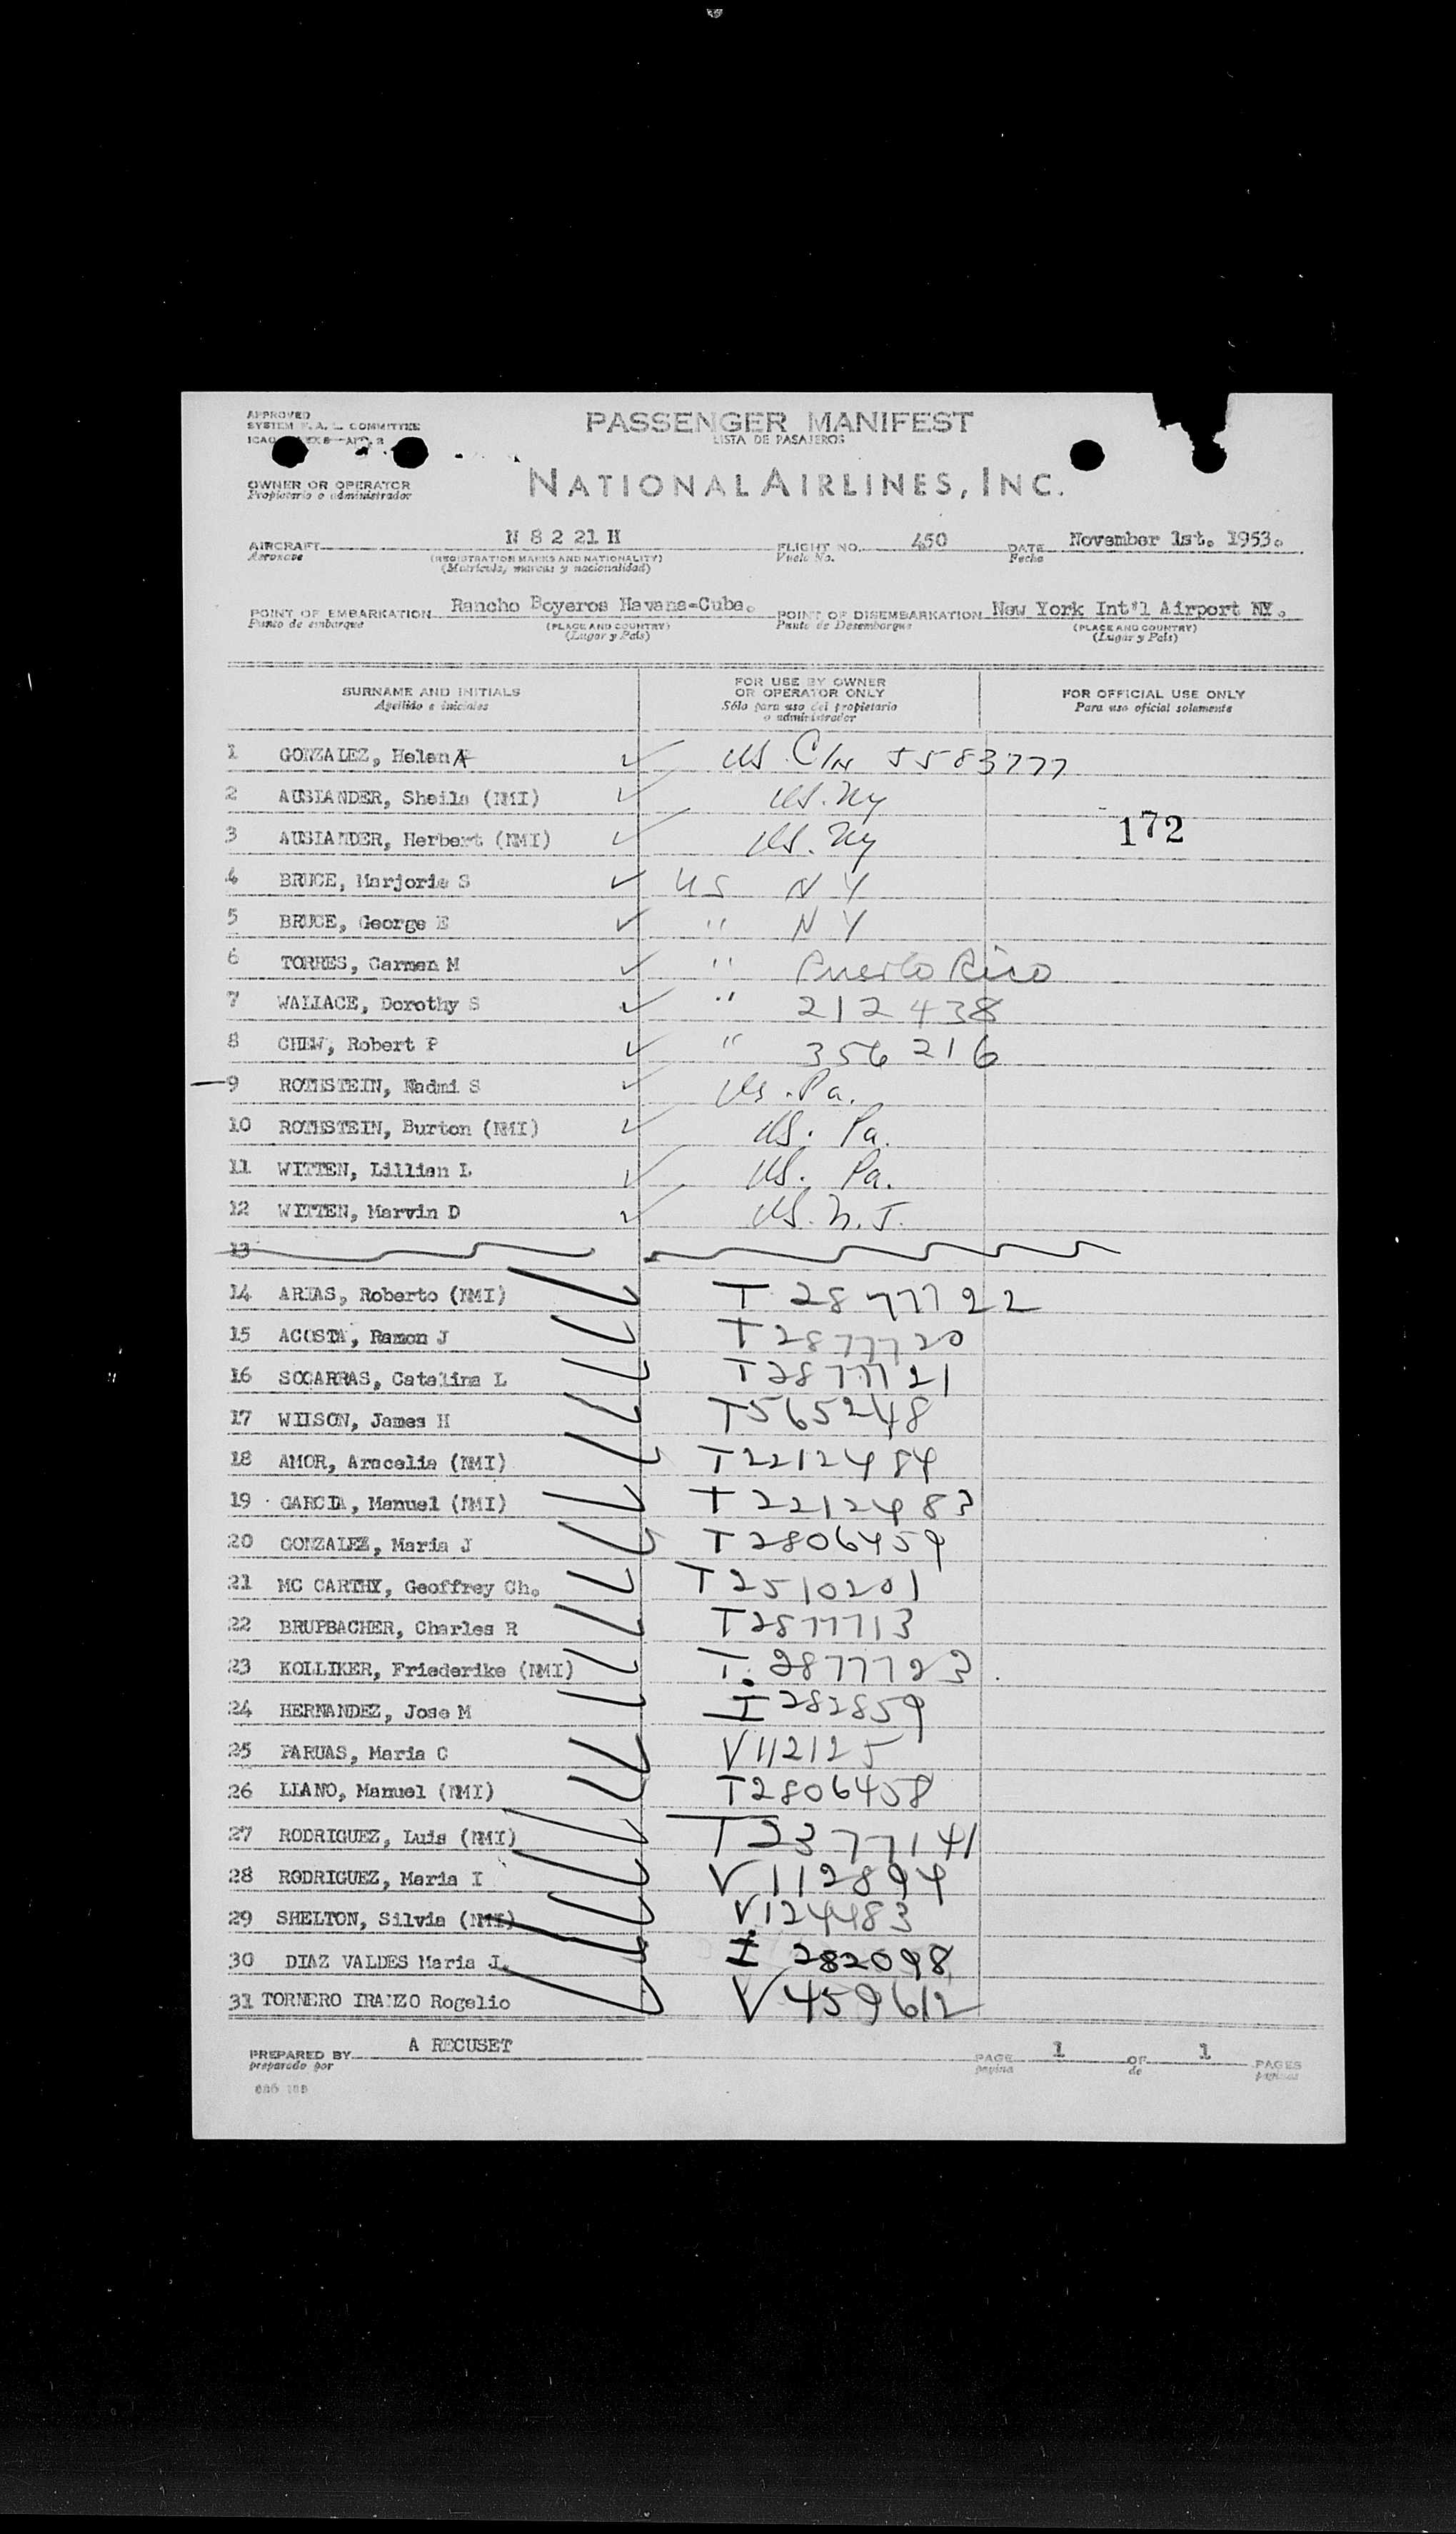 APPROVED
SYSTEM F.A.L. COMMITTEE
PASSENGER MANIFEST
LISTA DE PASAJEROS
OWNER OR OPERATOR
Propietario o administrador
NATIONAL AIRLINES, INC.
AIRCRAFT N 8 2 21 H FLIGHT NO. 450 DATE November 1st. 1953.
Aeronave (REGISTRATION MARKS AND NATIONALITY) Vuelo No. Fecha
(Matrícula, marcas y nacionalidad)
POINT OF EMBARKATION Rancho Boyeros Havana-Cuba. POINT OF DISEMBARKATION New York Int'l Airport NY.
Punto de embarque (PLACE AND COUNTRY) Punto de Desembarque (PLACE AND COUNTRY)
(Lugar y País) (Lugar y País)
SURNAME AND INITIALS FOR USE BY OWNER OR OPERATOR ONLY FOR OFFICIAL USE ONLY
Apellido e iniciales Sólo para uso del propietario o administrador Para uso oficial solamente
1 GONZALEZ, Helen A US C/N 5583777
2 AUSLANDER, Sheila (NMI) US. Ny
3 AUSLANDER, Herbert (NMI) US. Ny 172
4 BRUCE, Marjorie S US N Y
5 BRUCE, George E " N Y
6 TORRES, Carmen M " Puerto Rico
7 WALLACE, Dorothy S " 212438
8 CHEW, Robert P " 356216
9 ROTHSTEIN, Nadmi S US. Pa.
10 ROTHSTEIN, Burton (NMI) US. Pa.
11 WITTEN, Lillian L US. Pa.
12 WITTEN, Marvin D US. N.J.
13
14 ARIAS, Roberto (NMI) T 2877722
15 ACOSTA, Ramon J T2877720
16 SOCARRAS, Catalina L T2877721
17 WILSON, James H T565248
18 AMOR, Aracelia (NMI) T2212484
19 GARCIA, Manuel (NMI) T2212483
20 GONZALEZ, Maria J T2806459
21 MC CARTHY, Geoffrey Ch. T2510201
22 BRUPBACHER, Charles R T2877713
23 KOLLIKER, Friederike (NMI) T. 2877723
24 HERNANDEZ, Jose M I 282859
25 PARUAS, Maria C V112125
26 LLANO, Manuel (NMI) T2806458
27 RODRIGUEZ, Luis (NMI) T2377141
28 RODRIGUEZ, Maria I V 112894
29 SHELTON, Silvia (NMI) V124483
30 DIAZ VALDES Maria J. I 282098
31 TORNERO IRANZO Rogelio V459612
PREPARED BY A RECUSET PAGE 1 OF 1 PAGES
preparado por pagina de paginas